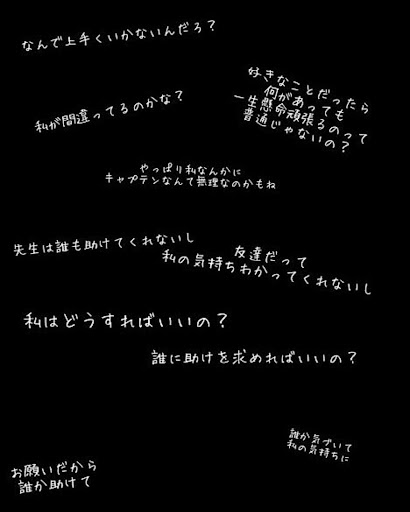 なんで上手くいかないんだろ？
好きなことだったら
何があっても
一生懸命頑張るのって
普通じゃないの？
私が間違ってるのかな？
やっぱり私なんかに
キャプテンなんて無理なのかもね
先生は誰も助けてくれないし
友達だって
私の気持ちわかってくれないし
私はどうすればいいの？
誰に助けを求めればいいの？
誰か気づいて
私の気持ちに
お願いだから
誰か助けて